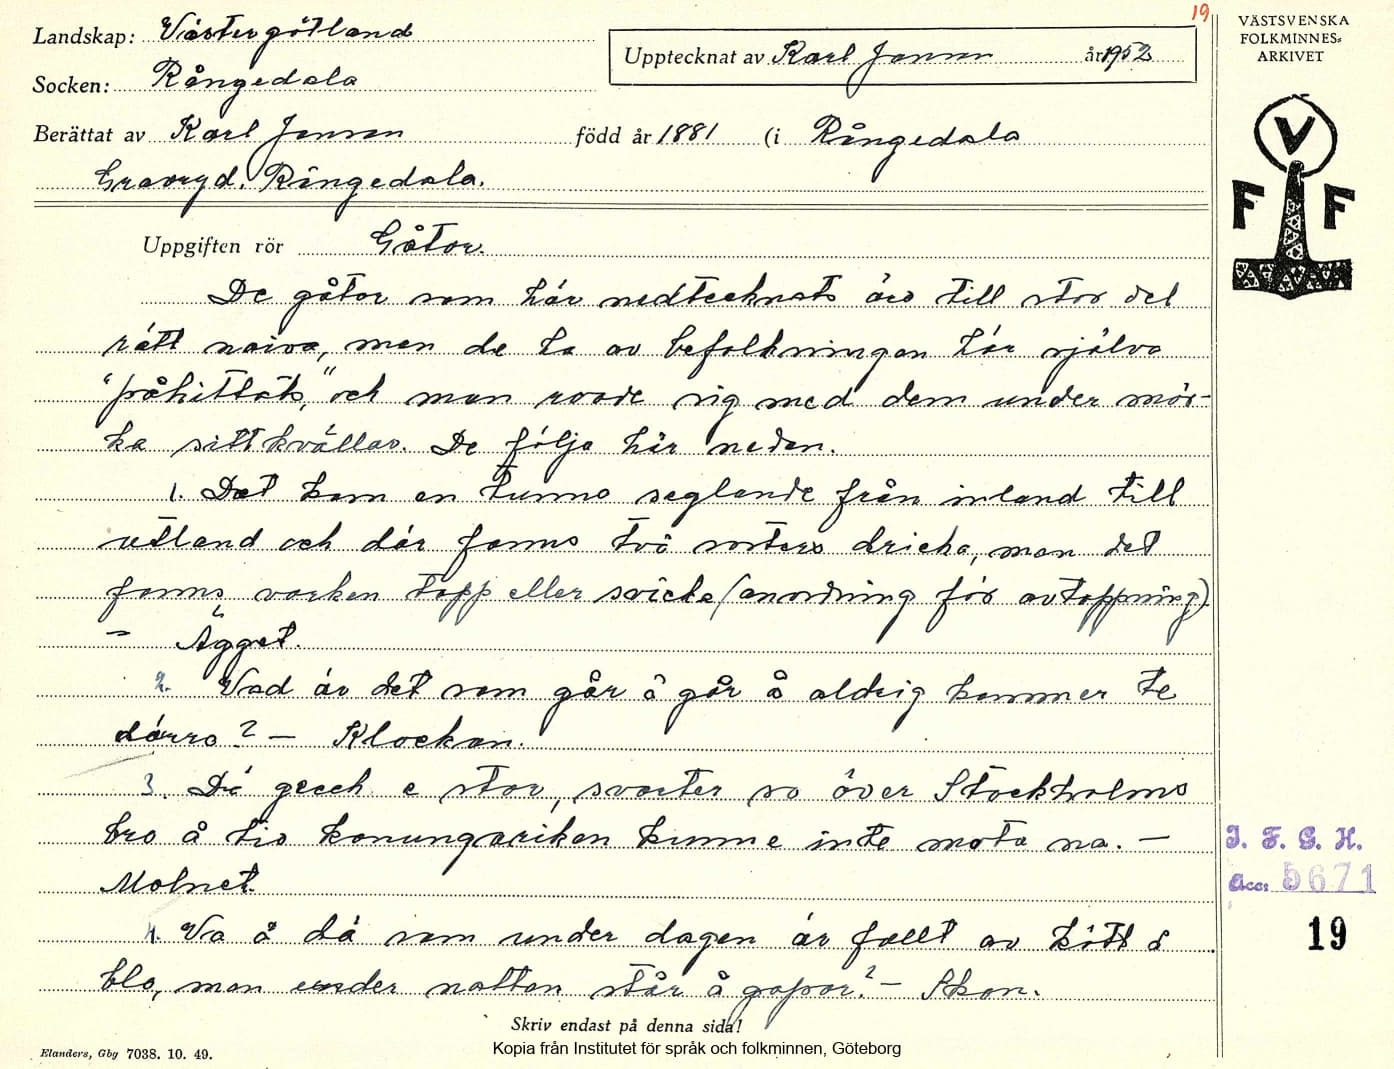 19
Landskap: Västergötland
Upptecknat av Karl Jonson år 1952
Socken: Rångedala
Berättat av Karl Jonson född år 1881 (i Rångedala
Gravryd. Rångedala.
Uppgiften rör Gåtor.
De gåtor som här nedtecknats äro till stor del
rätt naiva, men de ha av befolkningen här själva
"påhittats," och man roade sig med dem under mör-
ka sittkvällar. De följa här neden.
1. Det kom en tunna seglande från inland till
utland och där fanns två sorters dricka, men det
fanns varken tapp eller svicka (anordning för avtappning)
– Ägget.
2. Vad är det som går å går å aldrig kommer te
dörra? – Klockan.
3. Dä geck e stor, svarter so över Stockholms
bro å tio konungariken kunne inte mota na. –
Molnet.
4. Va ä dä som under dagen är fullt av kött å
blo, men under natten står å gapar? – Skon.
Skriv endast på denna sida!
Elanders, Gbg 7038. 10. 49.
Kopia från Institutet för språk och folkminnen, Göteborg
VÄSTSVENSKA
FOLKMINNES-
ARKIVET
V
F F
I. F. G. H.
Acc: 5671
19